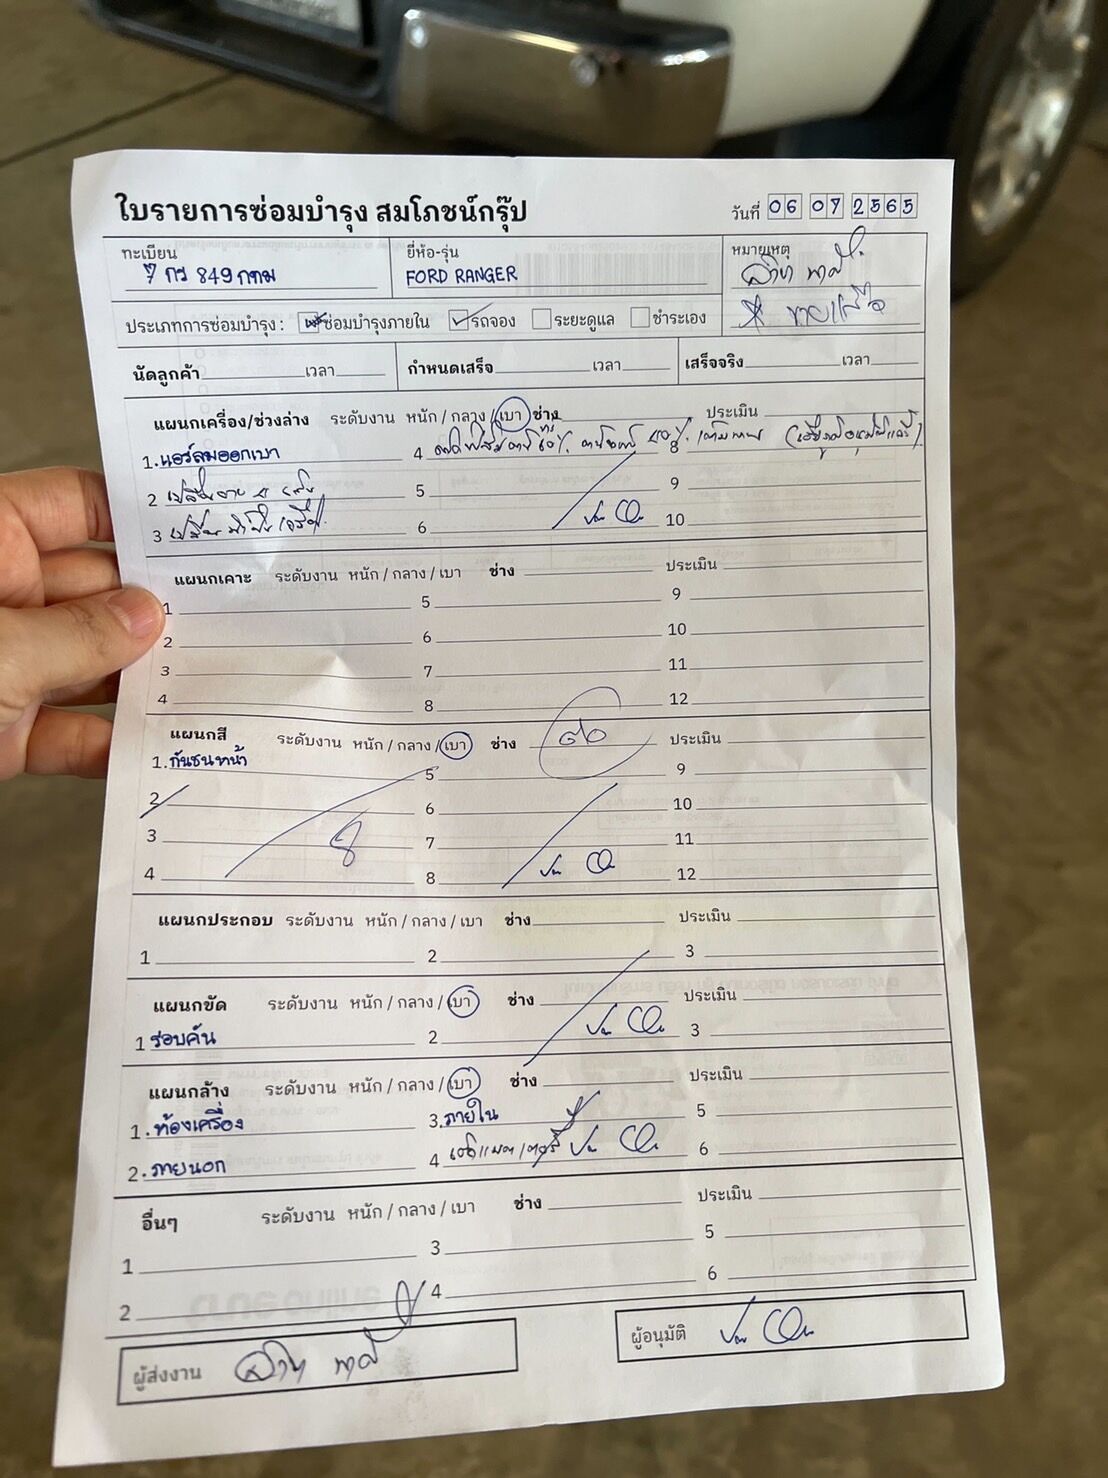 ใบรายการซ่อมบำรุง สมโภชน์กรุ๊ป
วันที่ 06 07 2565
ทะเบียน
7 กว 849 กทม
ยี่ห้อ-รุ่น
FORD RANGER
หมายเหตุ
ประเภทการซ่อมบำรุง : ซ่อมบำรุงภายใน รถจอง ระยะดูแล ชำระเอง
นัดลูกค้า เวลา กำหนดเสร็จ เวลา เสร็จจริง เวลา
แผนกเครื่อง/ช่วงล่าง ระดับงาน หนัก / กลาง / เบา ช่าง ประเมิน
1. แอร์ลมออกเบา 4 8
2 5 9
3 6 10
แผนกเคาะ ระดับงาน หนัก / กลาง / เบา ช่าง ประเมิน
1 5 9
2 6 10
3 7 11
4 8 12
แผนกสี ระดับงาน หนัก / กลาง / เบา ช่าง ประเมิน
1. กันชนหน้า 5 9
2 6 10
3 7 11
4 8 12
แผนกประกอบ ระดับงาน หนัก / กลาง / เบา ช่าง ประเมิน
1 2 3
แผนกขัด ระดับงาน หนัก / กลาง / เบา ช่าง ประเมิน
1 รอบคัน 2 3
แผนกล้าง ระดับงาน หนัก / กลาง / เบา ช่าง ประเมิน
1. ห้องเครื่อง 3. ภายใน 5
2. ภายนอก 4 6
อื่นๆ ระดับงาน หนัก / กลาง / เบา ช่าง ประเมิน
1 3 5
2 4 6
ผู้ส่งงาน
ผู้อนุมัติ